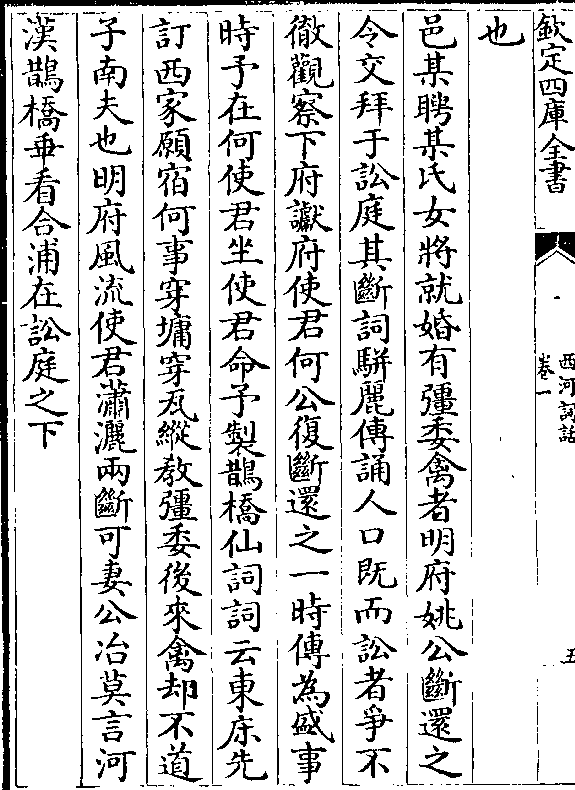 欽定四庫全書
西河詞話
卷一
五
也
邑某聘某氏女將就婚有彊委禽者明府姚公斷還之
令交拜于訟庭其斷詞駢麗傳誦人口既而訟者爭不
徹觀察下府讞府使君何公復斷還之一時傳為盛事
時予在何使君坐使君命予製鵲橋仙詞詞云東床先
訂西家願宿何事穿墉穿瓦縱教彊委後來禽却不道
子南夫也明府風流使君瀟灑兩斷可妻公冶莫言河
漢鵲橋乖看合浦在訟庭之下